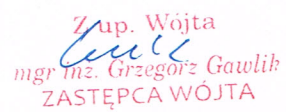 Z up. Wójta
mgr inż. Grzegorz Gawlik
ZASTĘPCA WÓJTA